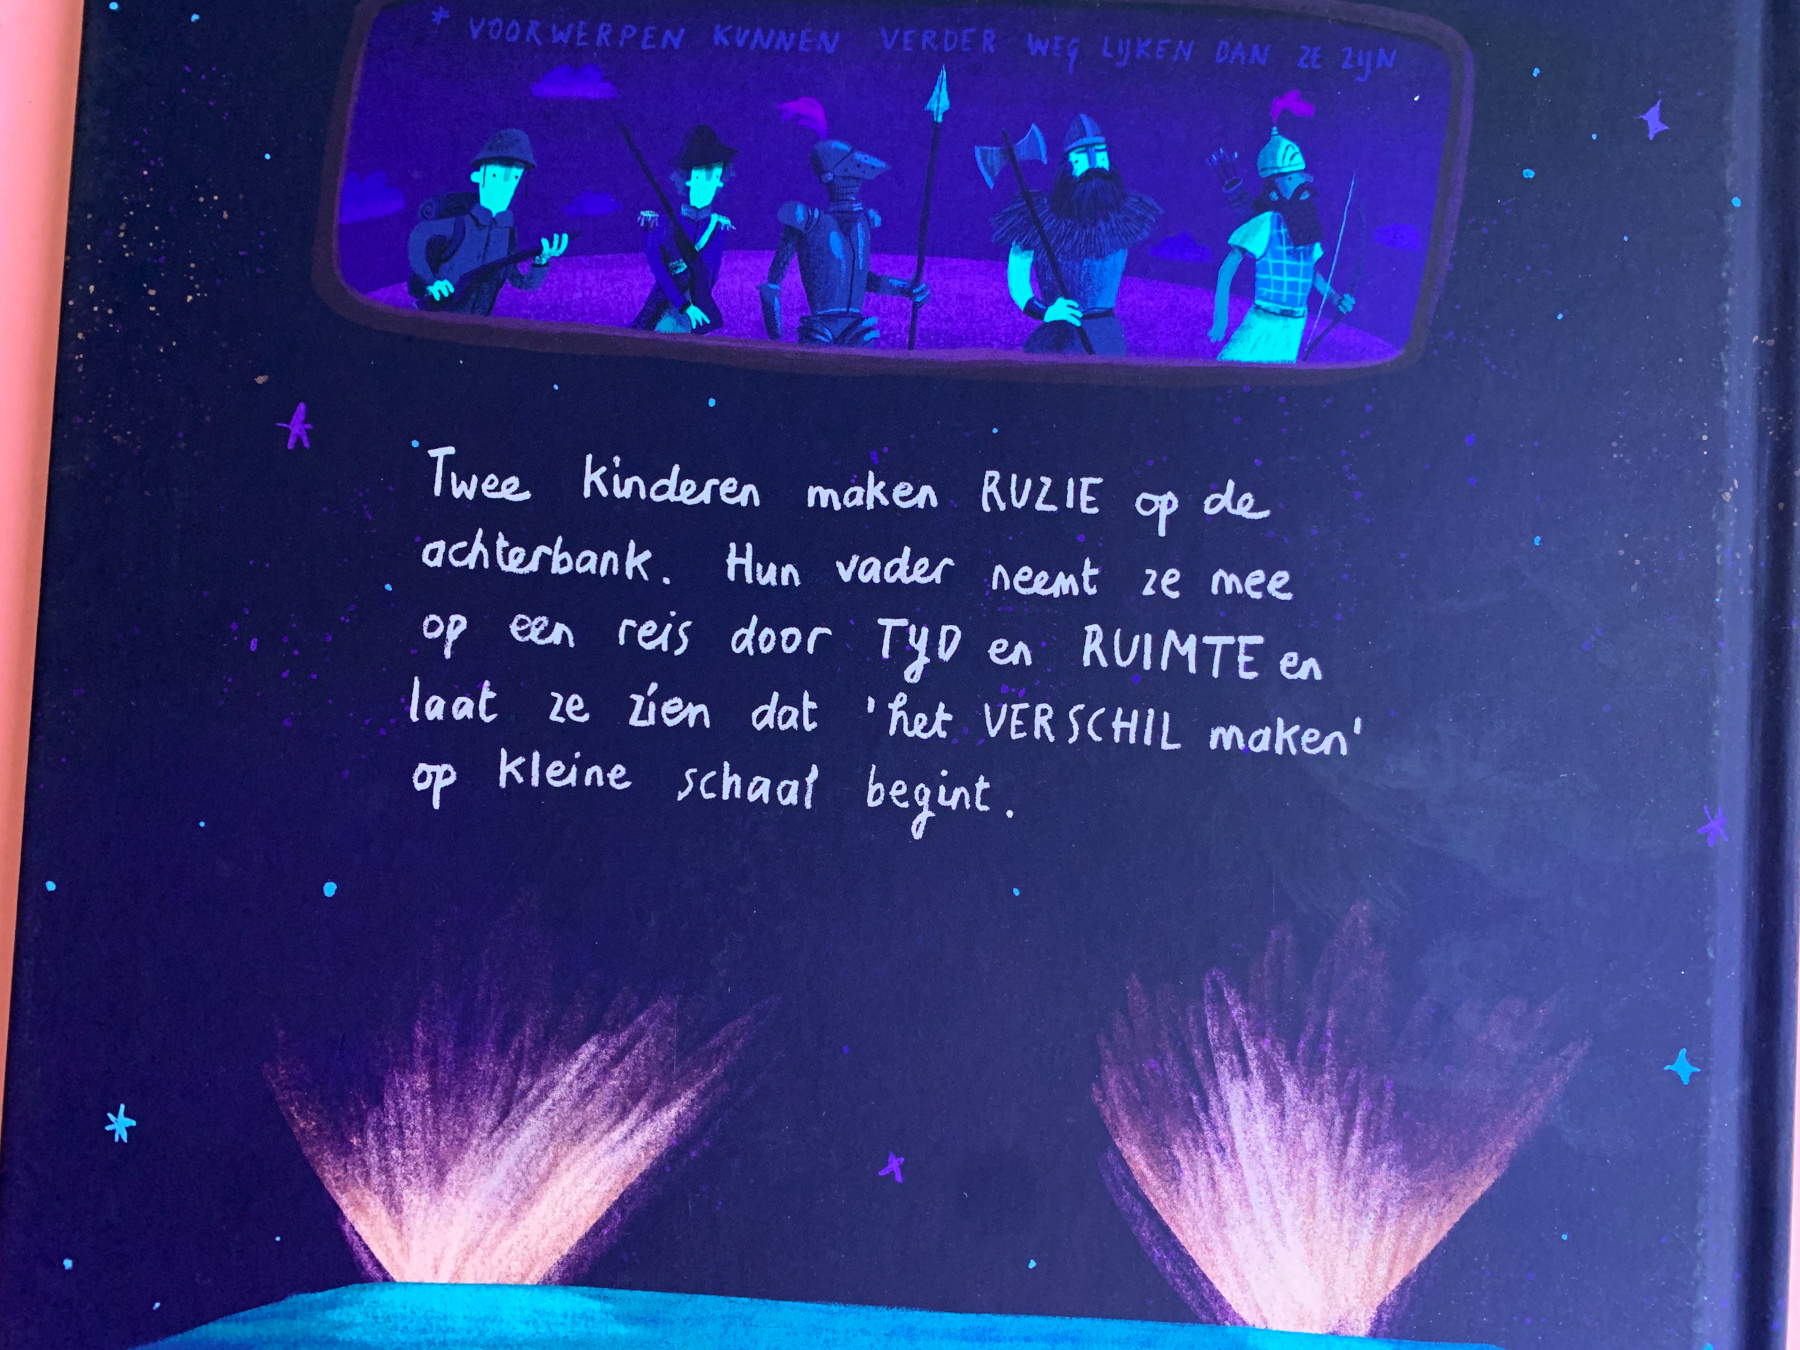 * VOORWERPEN KUNNEN VERDER WEG LIJKEN DAN ZE ZIJN
Twee kinderen maken RUZIE op de
achterbank. Hun vader neemt ze mee
op een reis door TYD en RUIMTE en
laat ze zien dat 'het VERSCHIL maken'
op kleine schaal begint.